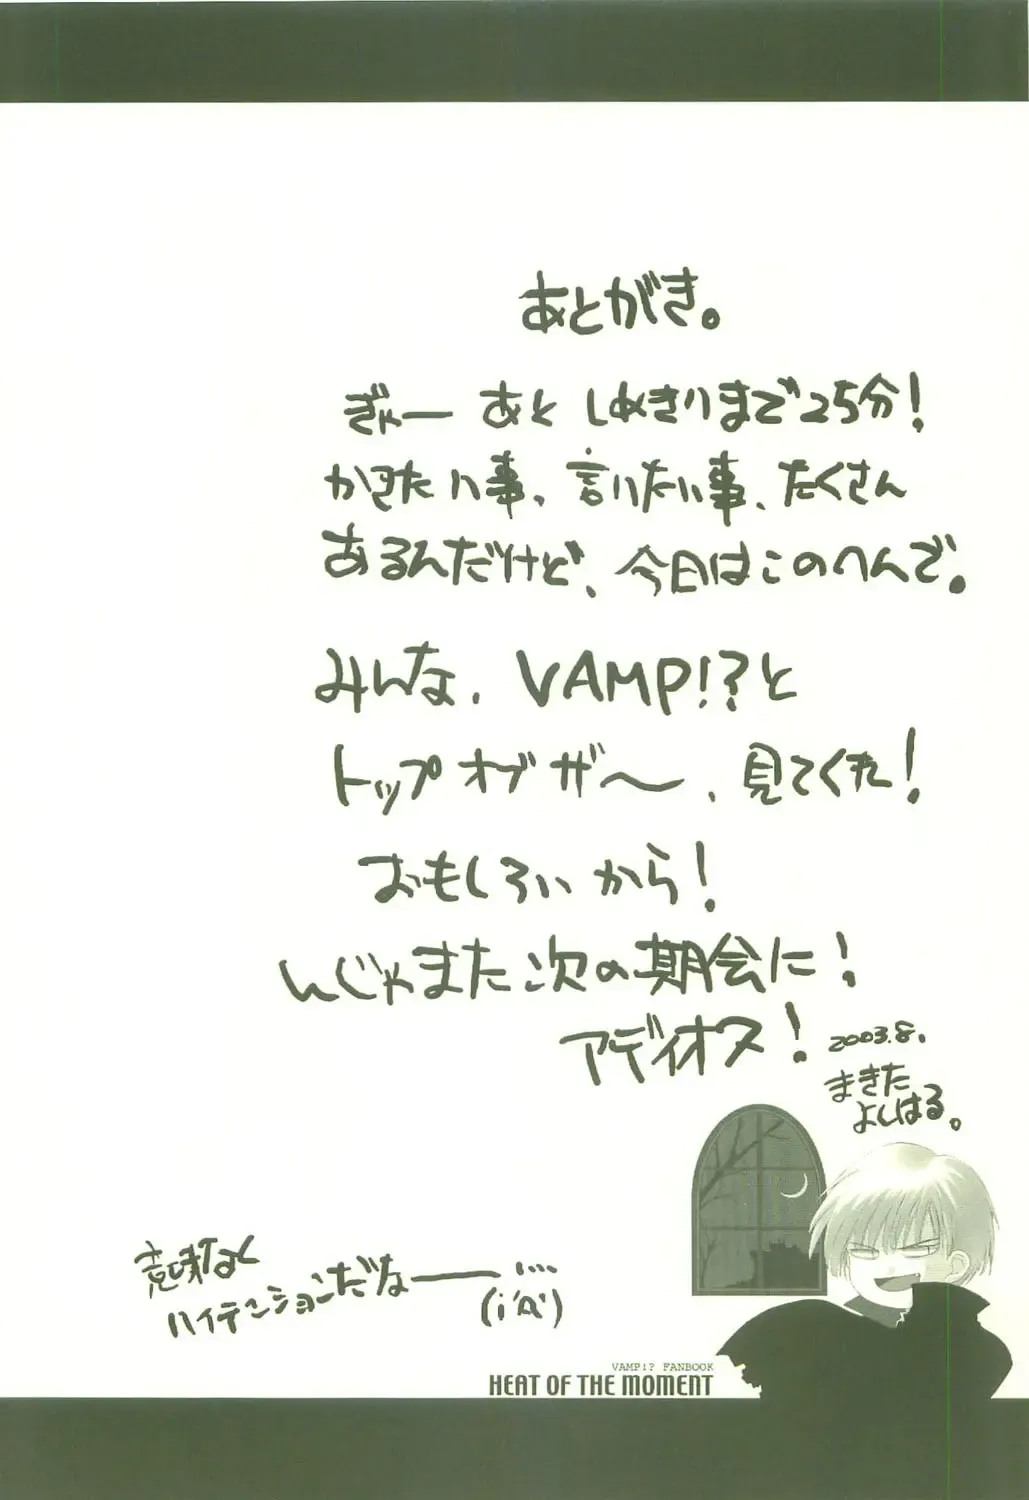 あとがき。
ぎゃー あと しめきりまで25分!
かきたい事、言いたい事、たくさん
あるんだけど、今日はこのへんで。
みんな、VAMP!?と
トップオブザ〜、見てくれ!
おもしろいから!
んじゃまた次の期会に!
アディオス!
2003.8.
まきた
よしはる。
意味なく
ハイテンションだなー…
(;´Д`)
VAMP!? FANBOOK
HEAT OF THE MOMENT